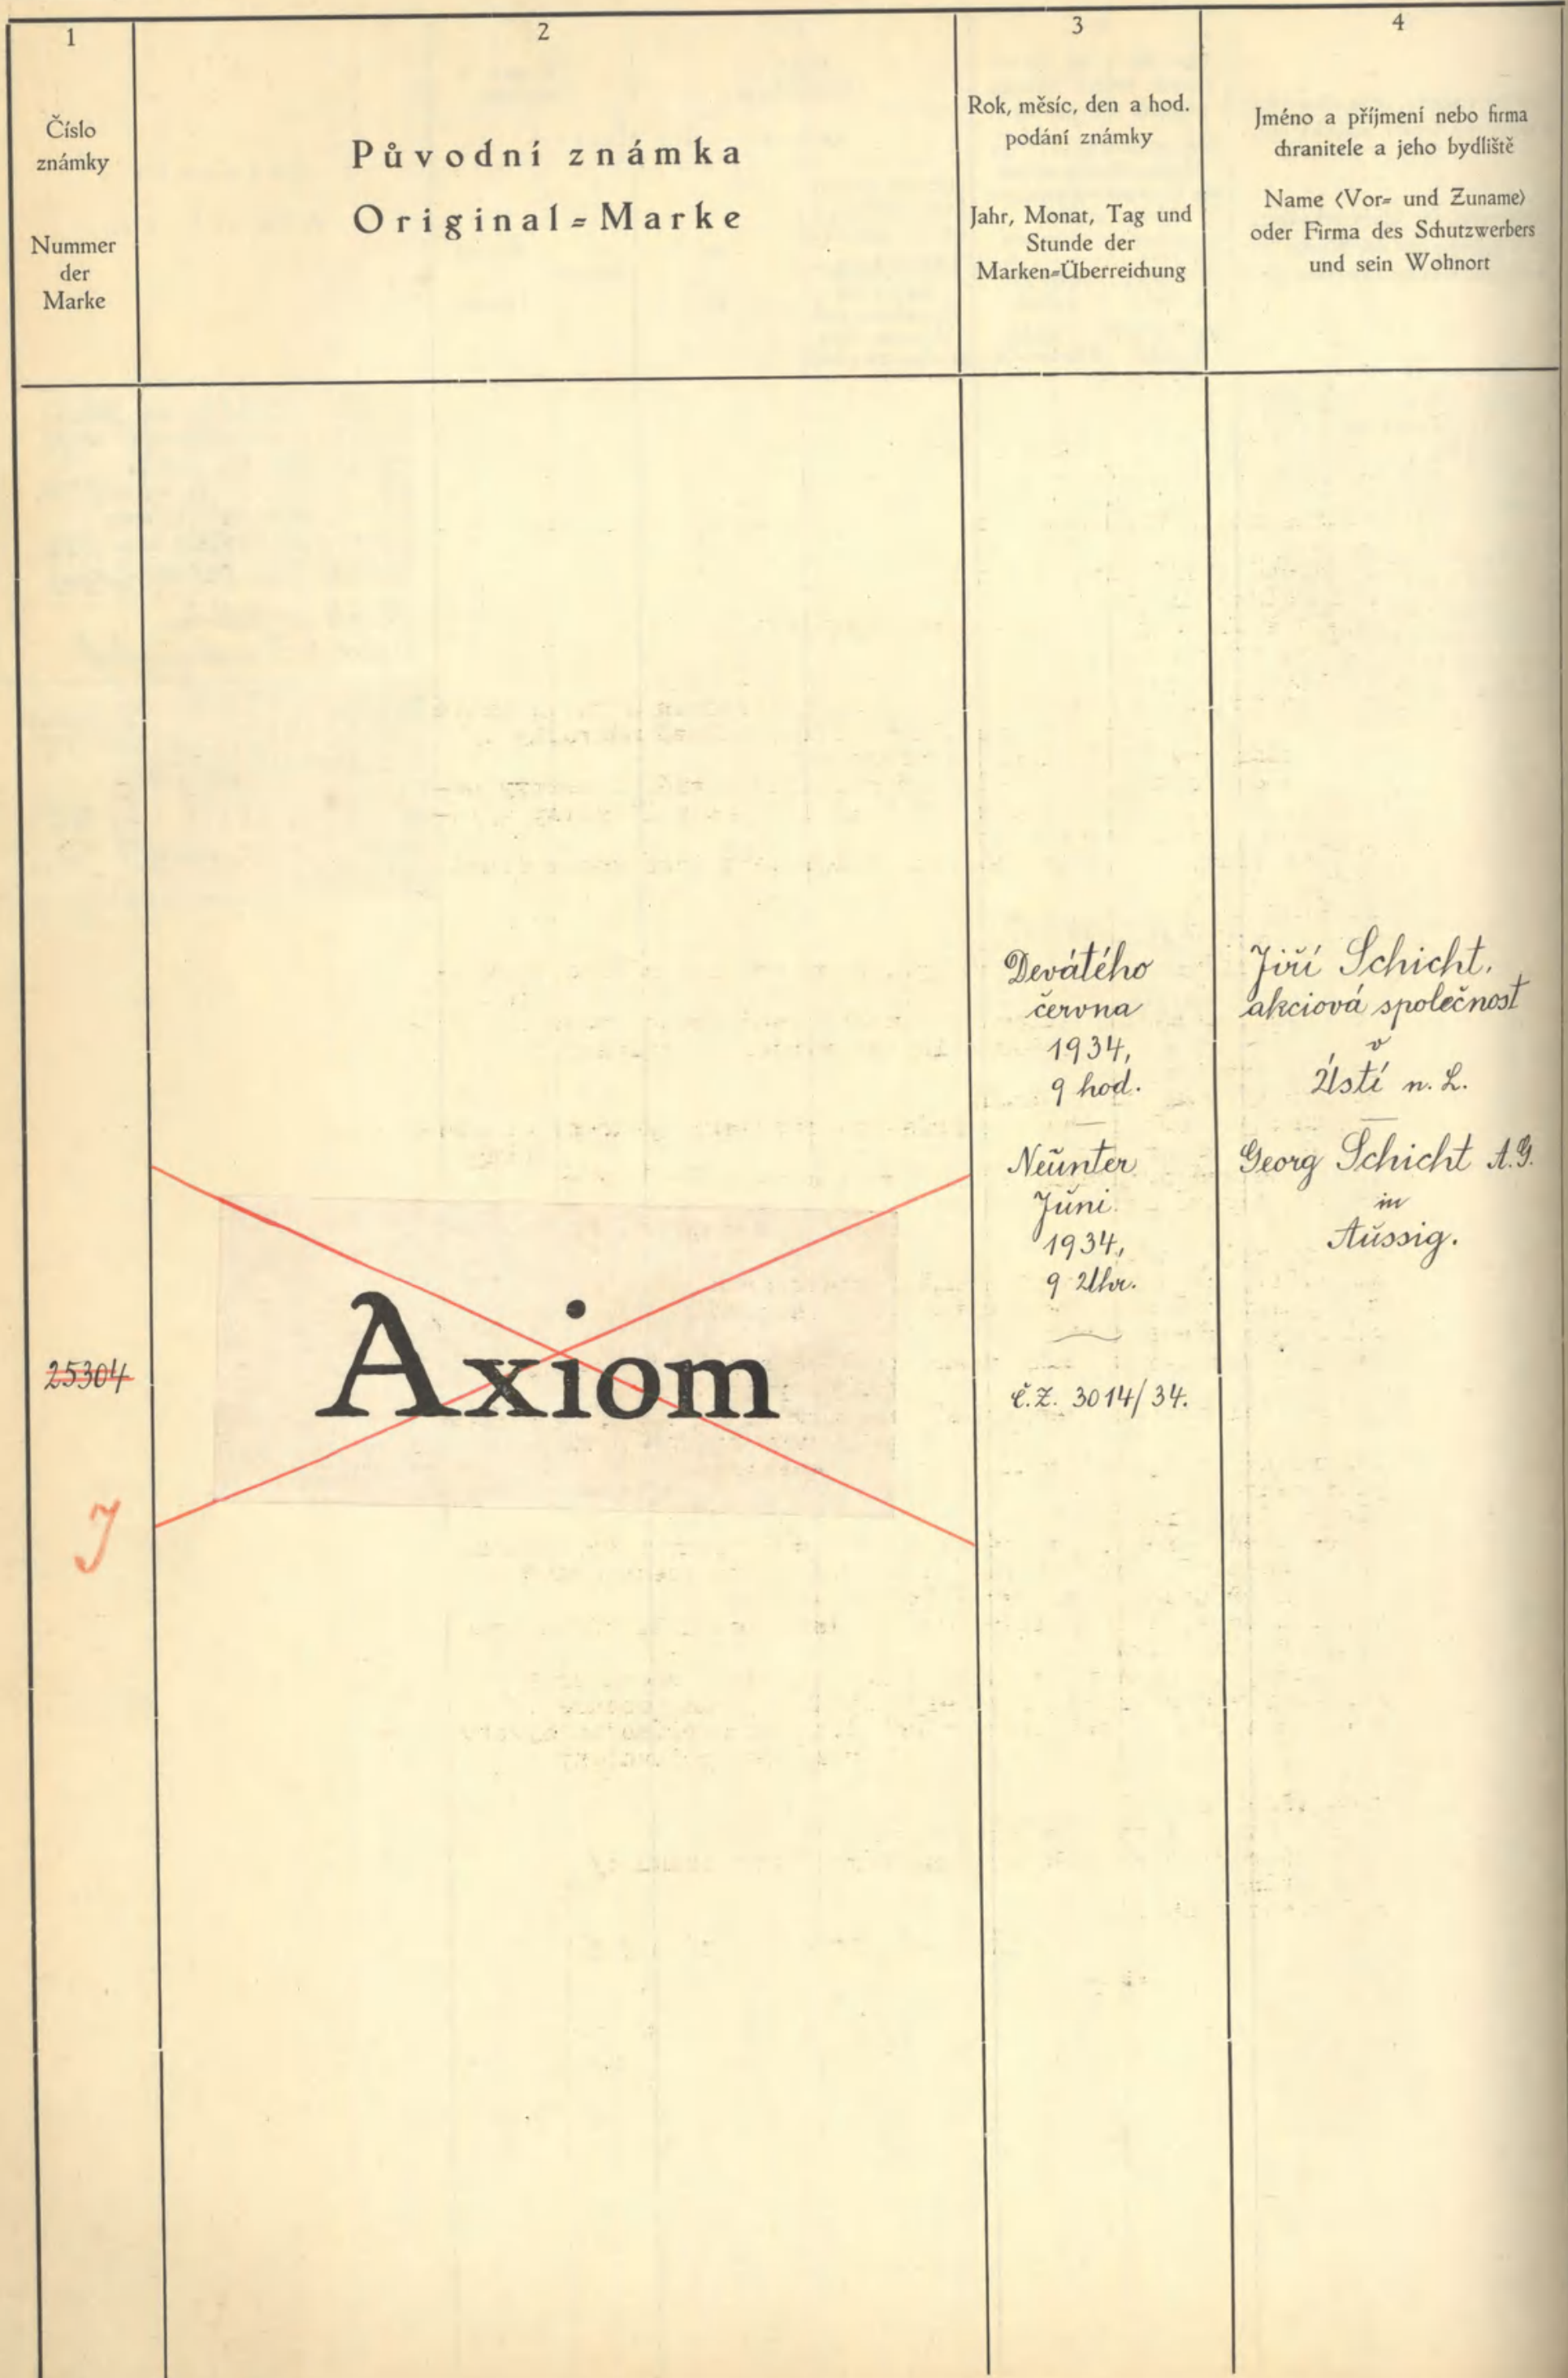 1
Číslo
známky
Nummer
der
Marke
2
Původní známka
Original=Marke
3
Rok, měsíc, den a hod.
podání známky
Jahr, Monat, Tag und
Stunde der
Marken=Überreichung
4
Jméno a příjmení nebo firma
chranitele a jeho bydliště
Name (Vor= und Zuname)
oder Firma des Schutzwerbers
und sein Wohnort
25304
J
Axiom
Devátého
června
1934,
9 hod.
Neunter
Juni
1934,
9 Uhr.
č.Z. 3014/34.
Jiří Schicht,
akciová společnost
v
Ústí n. L.
Georg Schicht A.G.
in
Aussig.